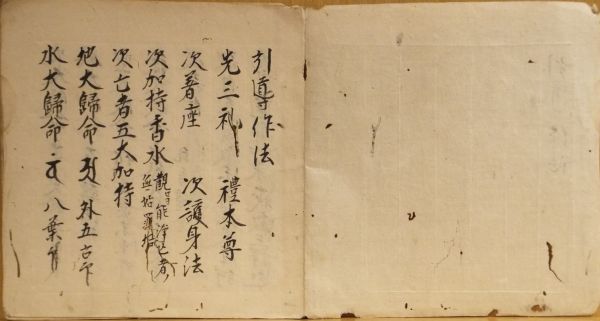 引導作法
先三礼 禮本尊
次着座 次護身法
次加持香水
次亡者五大加持
地大歸命 外五古印
水大歸命 八葉印